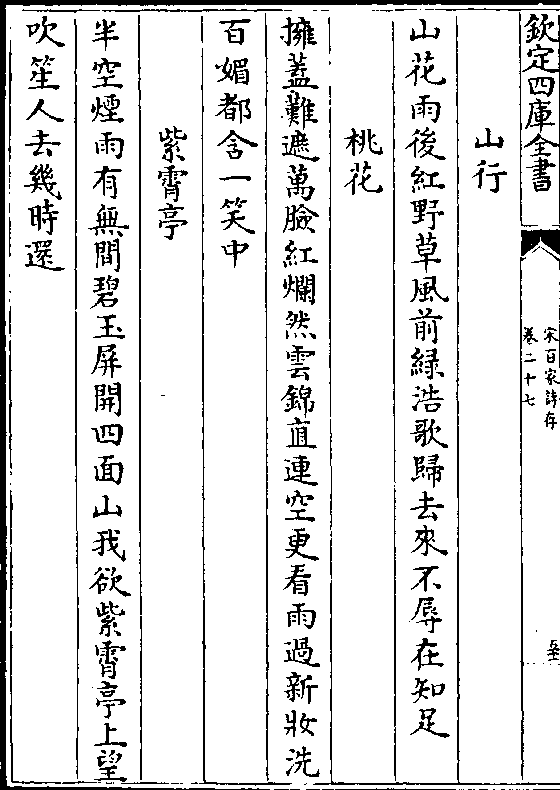 欽定四庫全書
宋百家詩存
卷二十七
山行
山花雨後紅野草風前緑浩歌歸去來不辱在知足
桃花
擁蓋難遮萬臉紅爛然雲錦直連空更看雨過新妝洗
百媚都含一笑中
紫霄亭
半空煙雨有無間碧玉屏開四面山我欲紫霄亭上望
吹笙人去幾時還